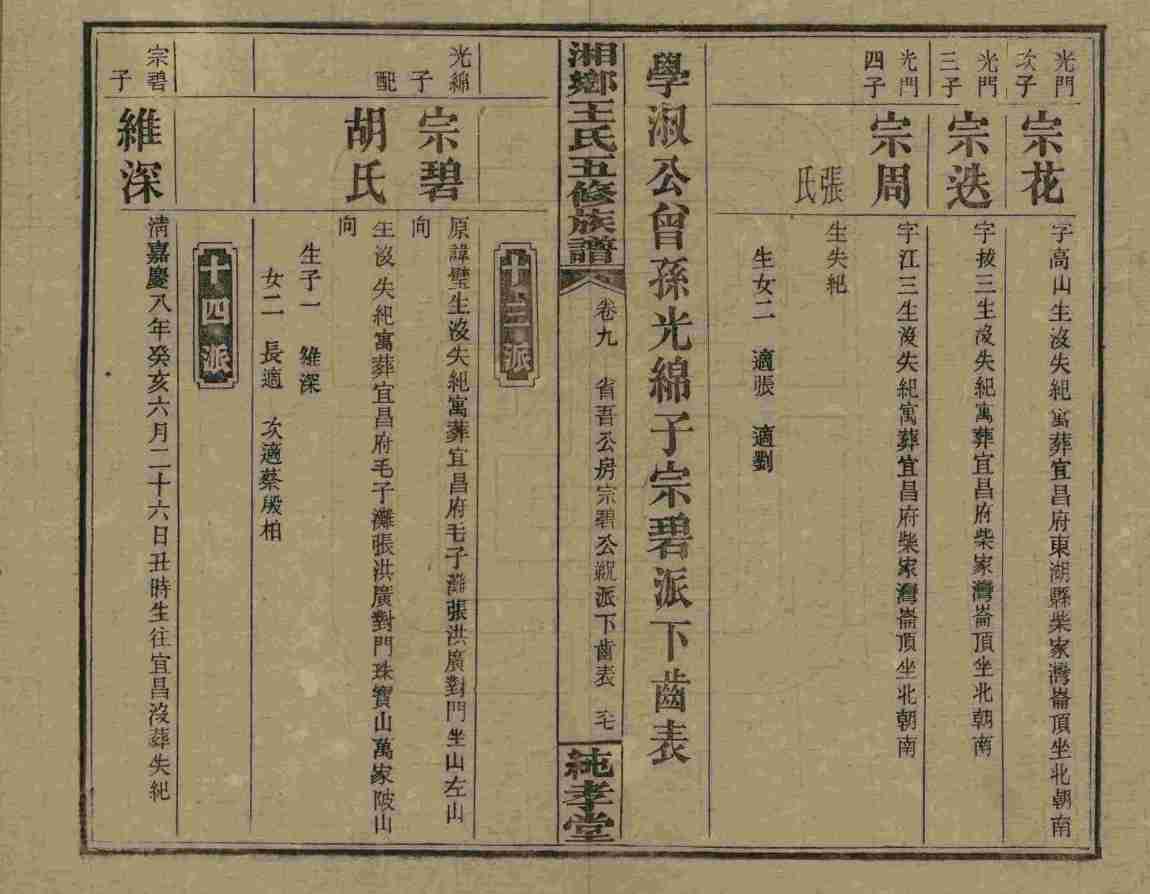 光門次子
宗花
字高山生沒失紀寓葬宜昌府東湖縣柴家灣崙頂坐北朝南
光門三子
宗迭
字拔三生沒失紀寓葬宜昌府柴家灣崙頂坐北朝南
光門四子
宗周
字江三生沒失紀寓葬宜昌府柴家灣崙頂坐北朝南
張氏
生失紀
生女二 適張 適劉
學淑公曾孫光綿子宗碧派下齒表
湘鄉王氏五修族譜
卷九 省吾公房宗碧公派下齒表
純孝堂
十三派
光綿子
宗碧
原諱璧生沒失紀寓葬宜昌府毛子灘張洪廣對門坐山左山
向
配
胡氏
生沒失紀寓葬宜昌府毛子灘張洪廣對門珠寶山萬家陂山
向
生子一 維深
女二 長適 次適蔡殷柏
十四派
宗碧子
維深
清嘉慶八年癸亥六月二十六日丑時生往宜昌沒葬失紀